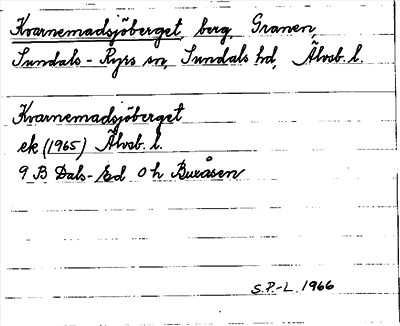 Kvarnemadsjöberget, berg, Granen,
Sundals-Ryrs sn, Sundals hd, Älvsb. l.
Kvarnemadsjöberget
ek (1965) Älvsb. l.
9 B Dals-Ed 0 h Buråsen
S.P.-L. 1966